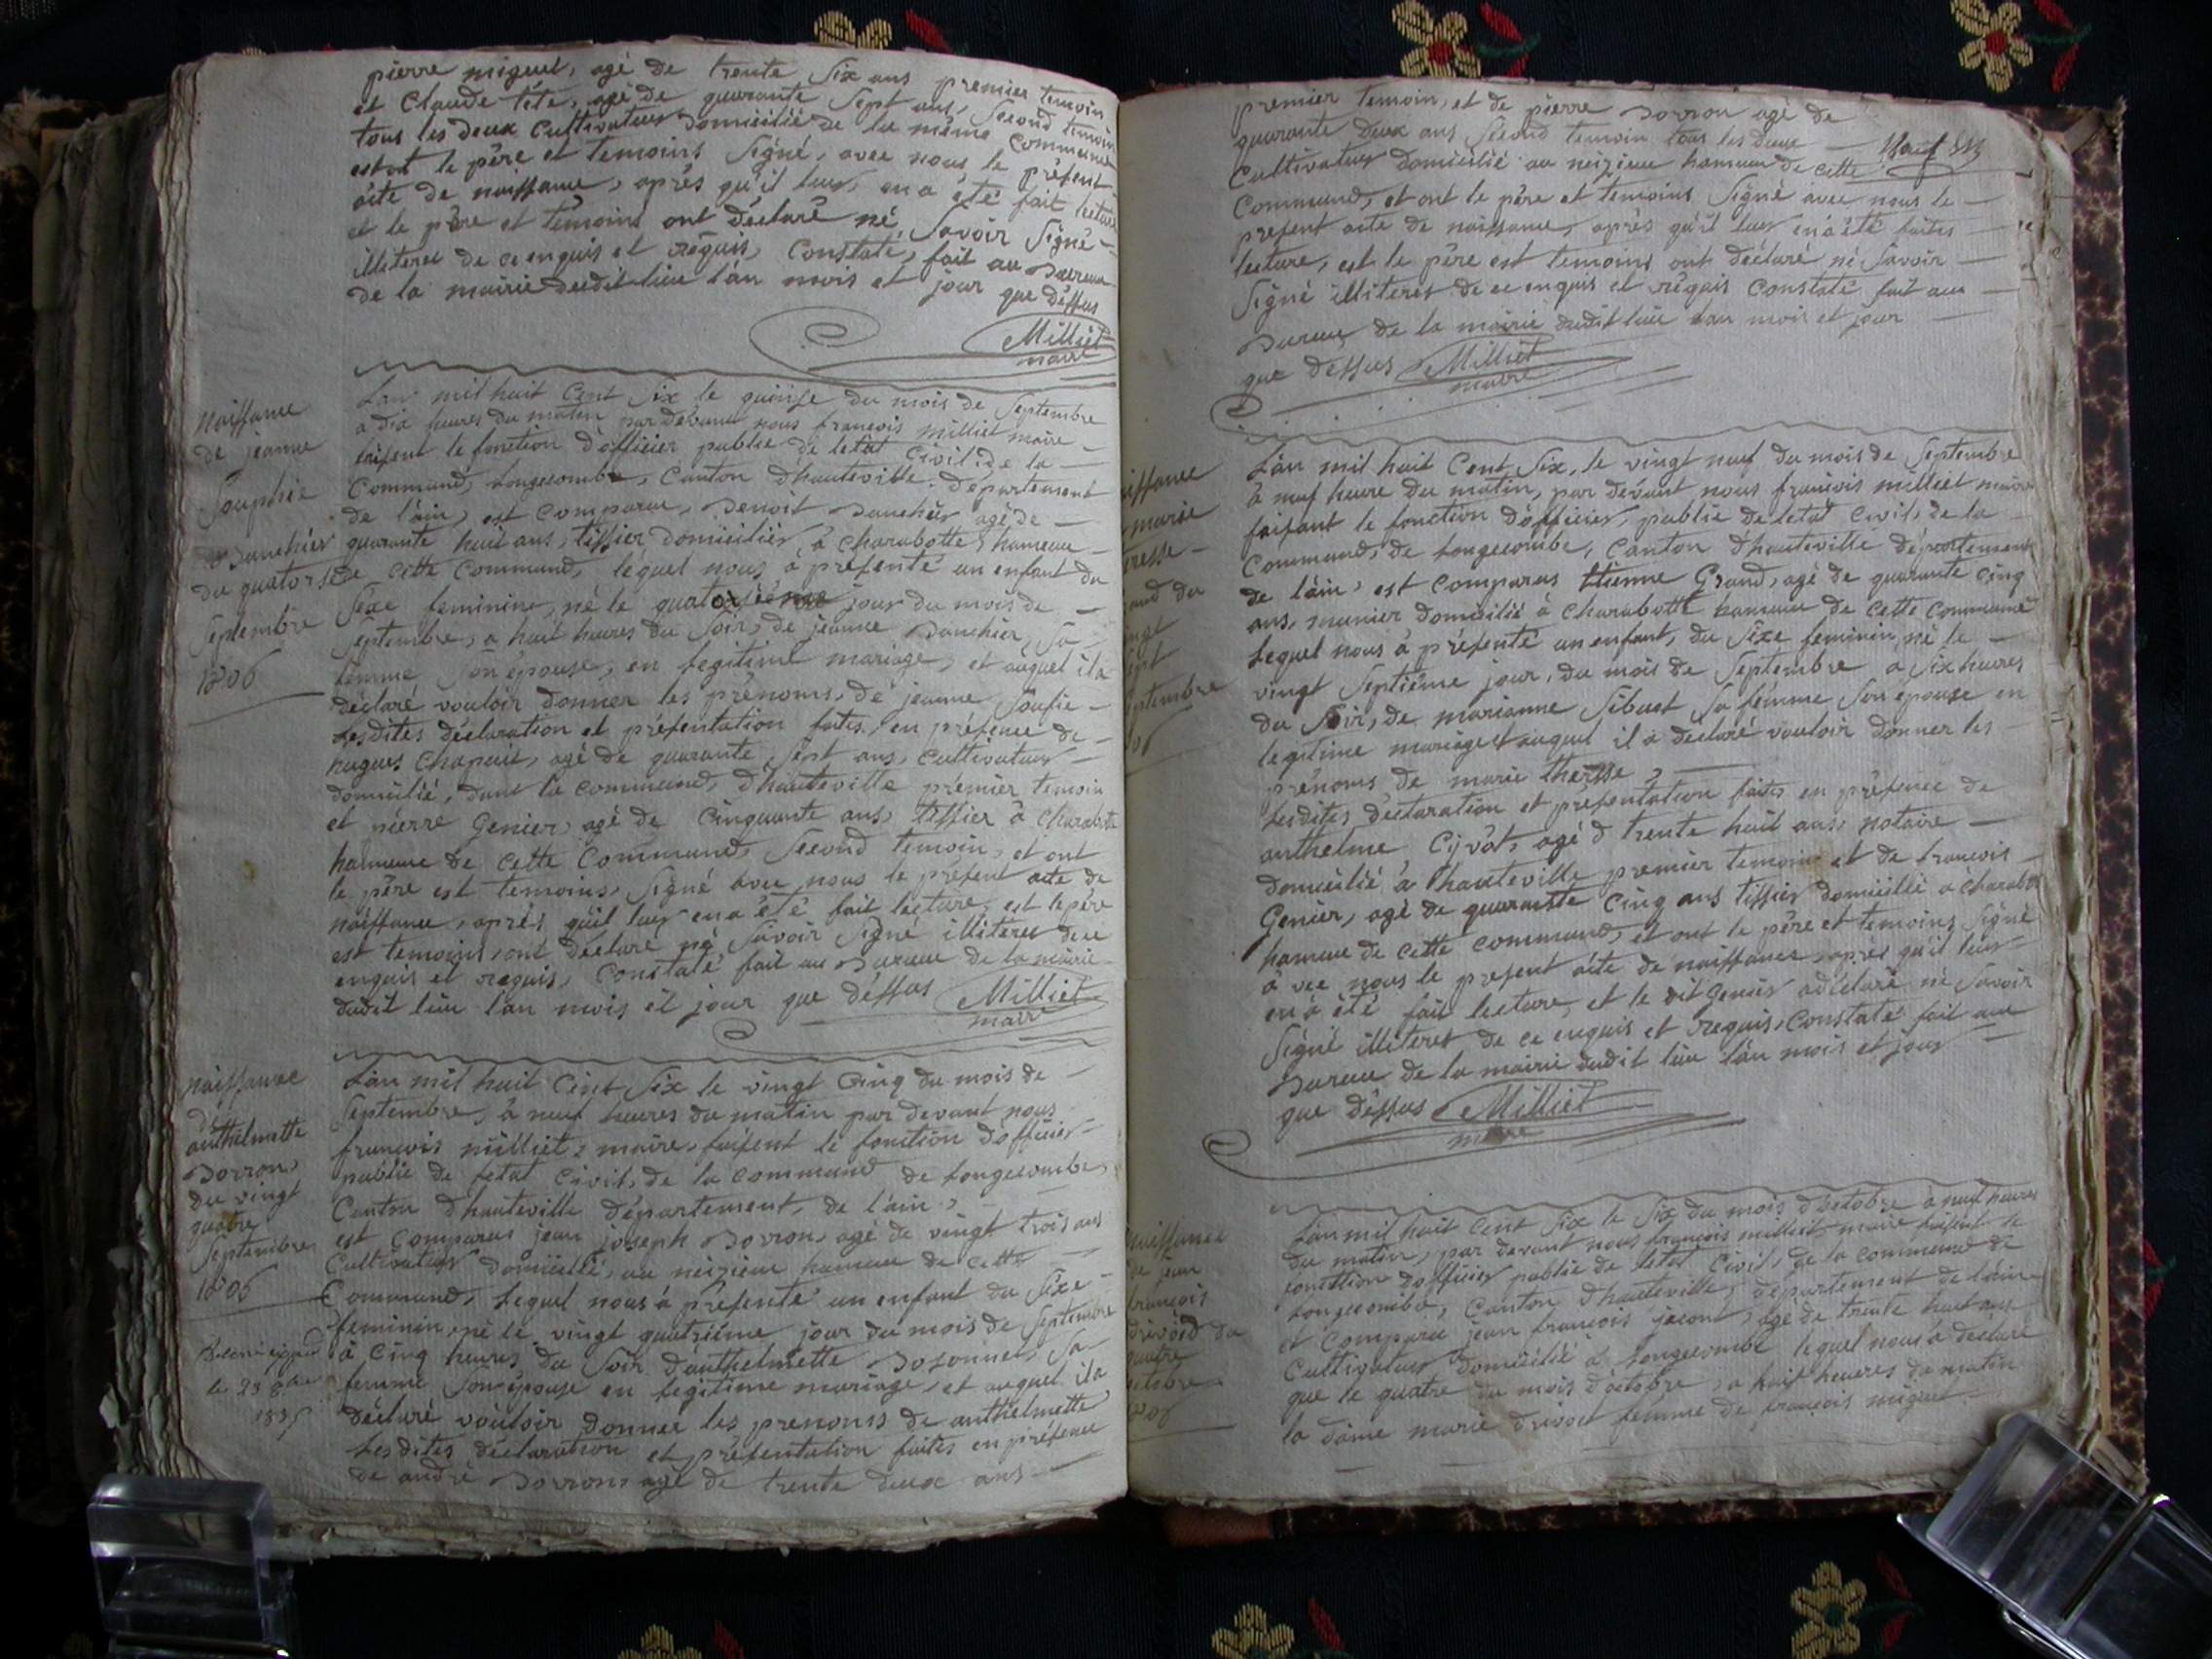 pierre miguet, agé de trente Six ans premier temoin
et Claude tête, agé de quarante Sept ans, Second temoin
tous les deux Cultivateur domicilié de la même Commune
estot le pêre et temoins Signé, avec nous le présent
acte de naissance, après qu'il leur en a été fait lecture
et le père et temoins ont déclaré né Savoir Signé
illiteres de ce enquis et requis, Constaté, fait au Bureau
de la mairie dudit lieu l'an mois et jour que déssus
Milliet
maire
naissance
de jeanne
Souphie
Banchier
du quatorse
Septembre
1806
L'an mil huit Cent Six le quinse du mois de Septembre
a dix heures du matin par devant nous francois milliet maire
faisent le fonction d'officier public de letat Civil de la
Commune, Longecombe, Canton d'hauteville, département
de l'ain, est comparu, Benoit Banchier agé de
quarante huit ans, tissier domicilier, a Charabotte hameau
de Cette Commune, lequel nous a présenté un enfant du
Sexe feminine, né le jour du mois de
Septembre, a huit heures du Soir, de jeanne Banchier, Sa
femme Son épouse, en legitime mariage, et auquel il a
déclaré vouloir donner les prénoms, de jeanne Soufie
Lesdites déclaration et présentation faites, en présence de
hugues Chapuit, agé de quarante Sept ans, Cultivateur
domicilié, dans la commune, d'hauteville prémier temoin
et piérre Genier, agé de Cinquante ans, tissier à Charabotte
hameau de Cette Commune, Second temoin, et ont
le père est temoins, Signé avec nous le présent acte de
naissance, après qu'il leur en a été fait lecture, est le pére
est temoins, ont déclaré né Savoir Signé illiteres de ce
enquis et requis, Constaté fait au Bureau de la mairie
dudit lieu l'an mois et jour que déssus Milliet
maire
naissance
d'
anthelmette
Borron,
du vingt
quatre
Septembre
1806
le 23
1835
L'an mil huit Cent Six le vingt Cinq du mois de
Septembre, à neuf heures du matin par devant nous
francois milliet, maire, faisent le fonction d'officier
public de letat Civil, de la commune de Longecombe,
Canton d'hauteville département, de l'ain,
est comparus jean joseph Borron, agé de vingt trois ans
Cultivateur domicilié, au neizieu hameau de Cette
Commune, Lequel nous a présenté un enfant du Sexe
feminin, né le vingt quatriéme jour du mois de Septembre
à Cinq heures du Soir d'anthelmette Bosonnet, Sa
femme Son épouse en legitime mariage, et auquel il a
déclaré vouloir donner les prenoms de anthelmette
Lesdites déclaration et présentation faites en présence
de andré Borron, agé de trente deux ans
premier temoin, et de pierre Borron agé de
quarante deux ans Second temoin tous les deux
Cultivateur domicilié au neizieu hameau de cette
Commune, et ont le père et temoins Signé avec nous le
present acte de naissance, après qu'il leur en à été faites
lecture, est le père est temoins ont déclaré né Savoir
Signé illiteres de ce enquis et requis Constaté fait au
Bureau de la mairie dudit lieu l'an mois et jour
que dessus Milliet
maire
L'an mil huit Cent Six, le vingt neuf du mois de Septembre
à neuf heure du matin, par devant nous francois milliet maire
faisant le fonction d'officier, public de letat Civil, de la
Commune, de Longecombe, Canton d'hauteville département
de l'ain, est comparus Etienne Grand, agé de quarante Cinq
ans, munier domicilié à Charabotte hameau de cette Commune
Lequel nous à présenté un enfant, du Sexe feminin, né le
vingt Septiéme jour, du mois de Septembre à Six heures
du Soir, de marianne Sibuet Sa fémme Son epouse en
legitime mariage et auquel il a déclaré vouloir donner les
prénoms de marie therese,
Lesdites, déclaration et présentation faites en présence de
anthelme Cyvot, agé d trente huit ans, notaire
domicilié à hauteville premier temoin et de francois
Genier, agé de quarante Cinq ans tissier domicilié a Charabotte
hameau de cette commune, et ont le père et temoins Signé
a vec nous le present acte de naissance, après qu'il leur
en à été fait lecture, et le dit Genier a déclaré né Savoir
Signé illiteres de ce enquis et requis, Constaté fait au
Bureau de la mairie dudit lieu l'an mois et jour
que déssus Milliet
maire
naissance
de jean
francois
drivoid du
quatre
octobre
1806
L'an mil huit Cent Six le Six du mois d'octobre à neuf heures
du matin, par devant nous francois milliet maire faisent le
fonction d'officier public de letat Civil, de la commune de
Longecombe, Canton d'hauteville, département de l'ain
et comparu jean francois jacont, agé de trente huit ans
Cultivateur domicilié à Longecombe lequel nous à déclaré
que le quatre du mois d'octobre, a huit heures du matin
la dame marie drivoet femme de francois miguet